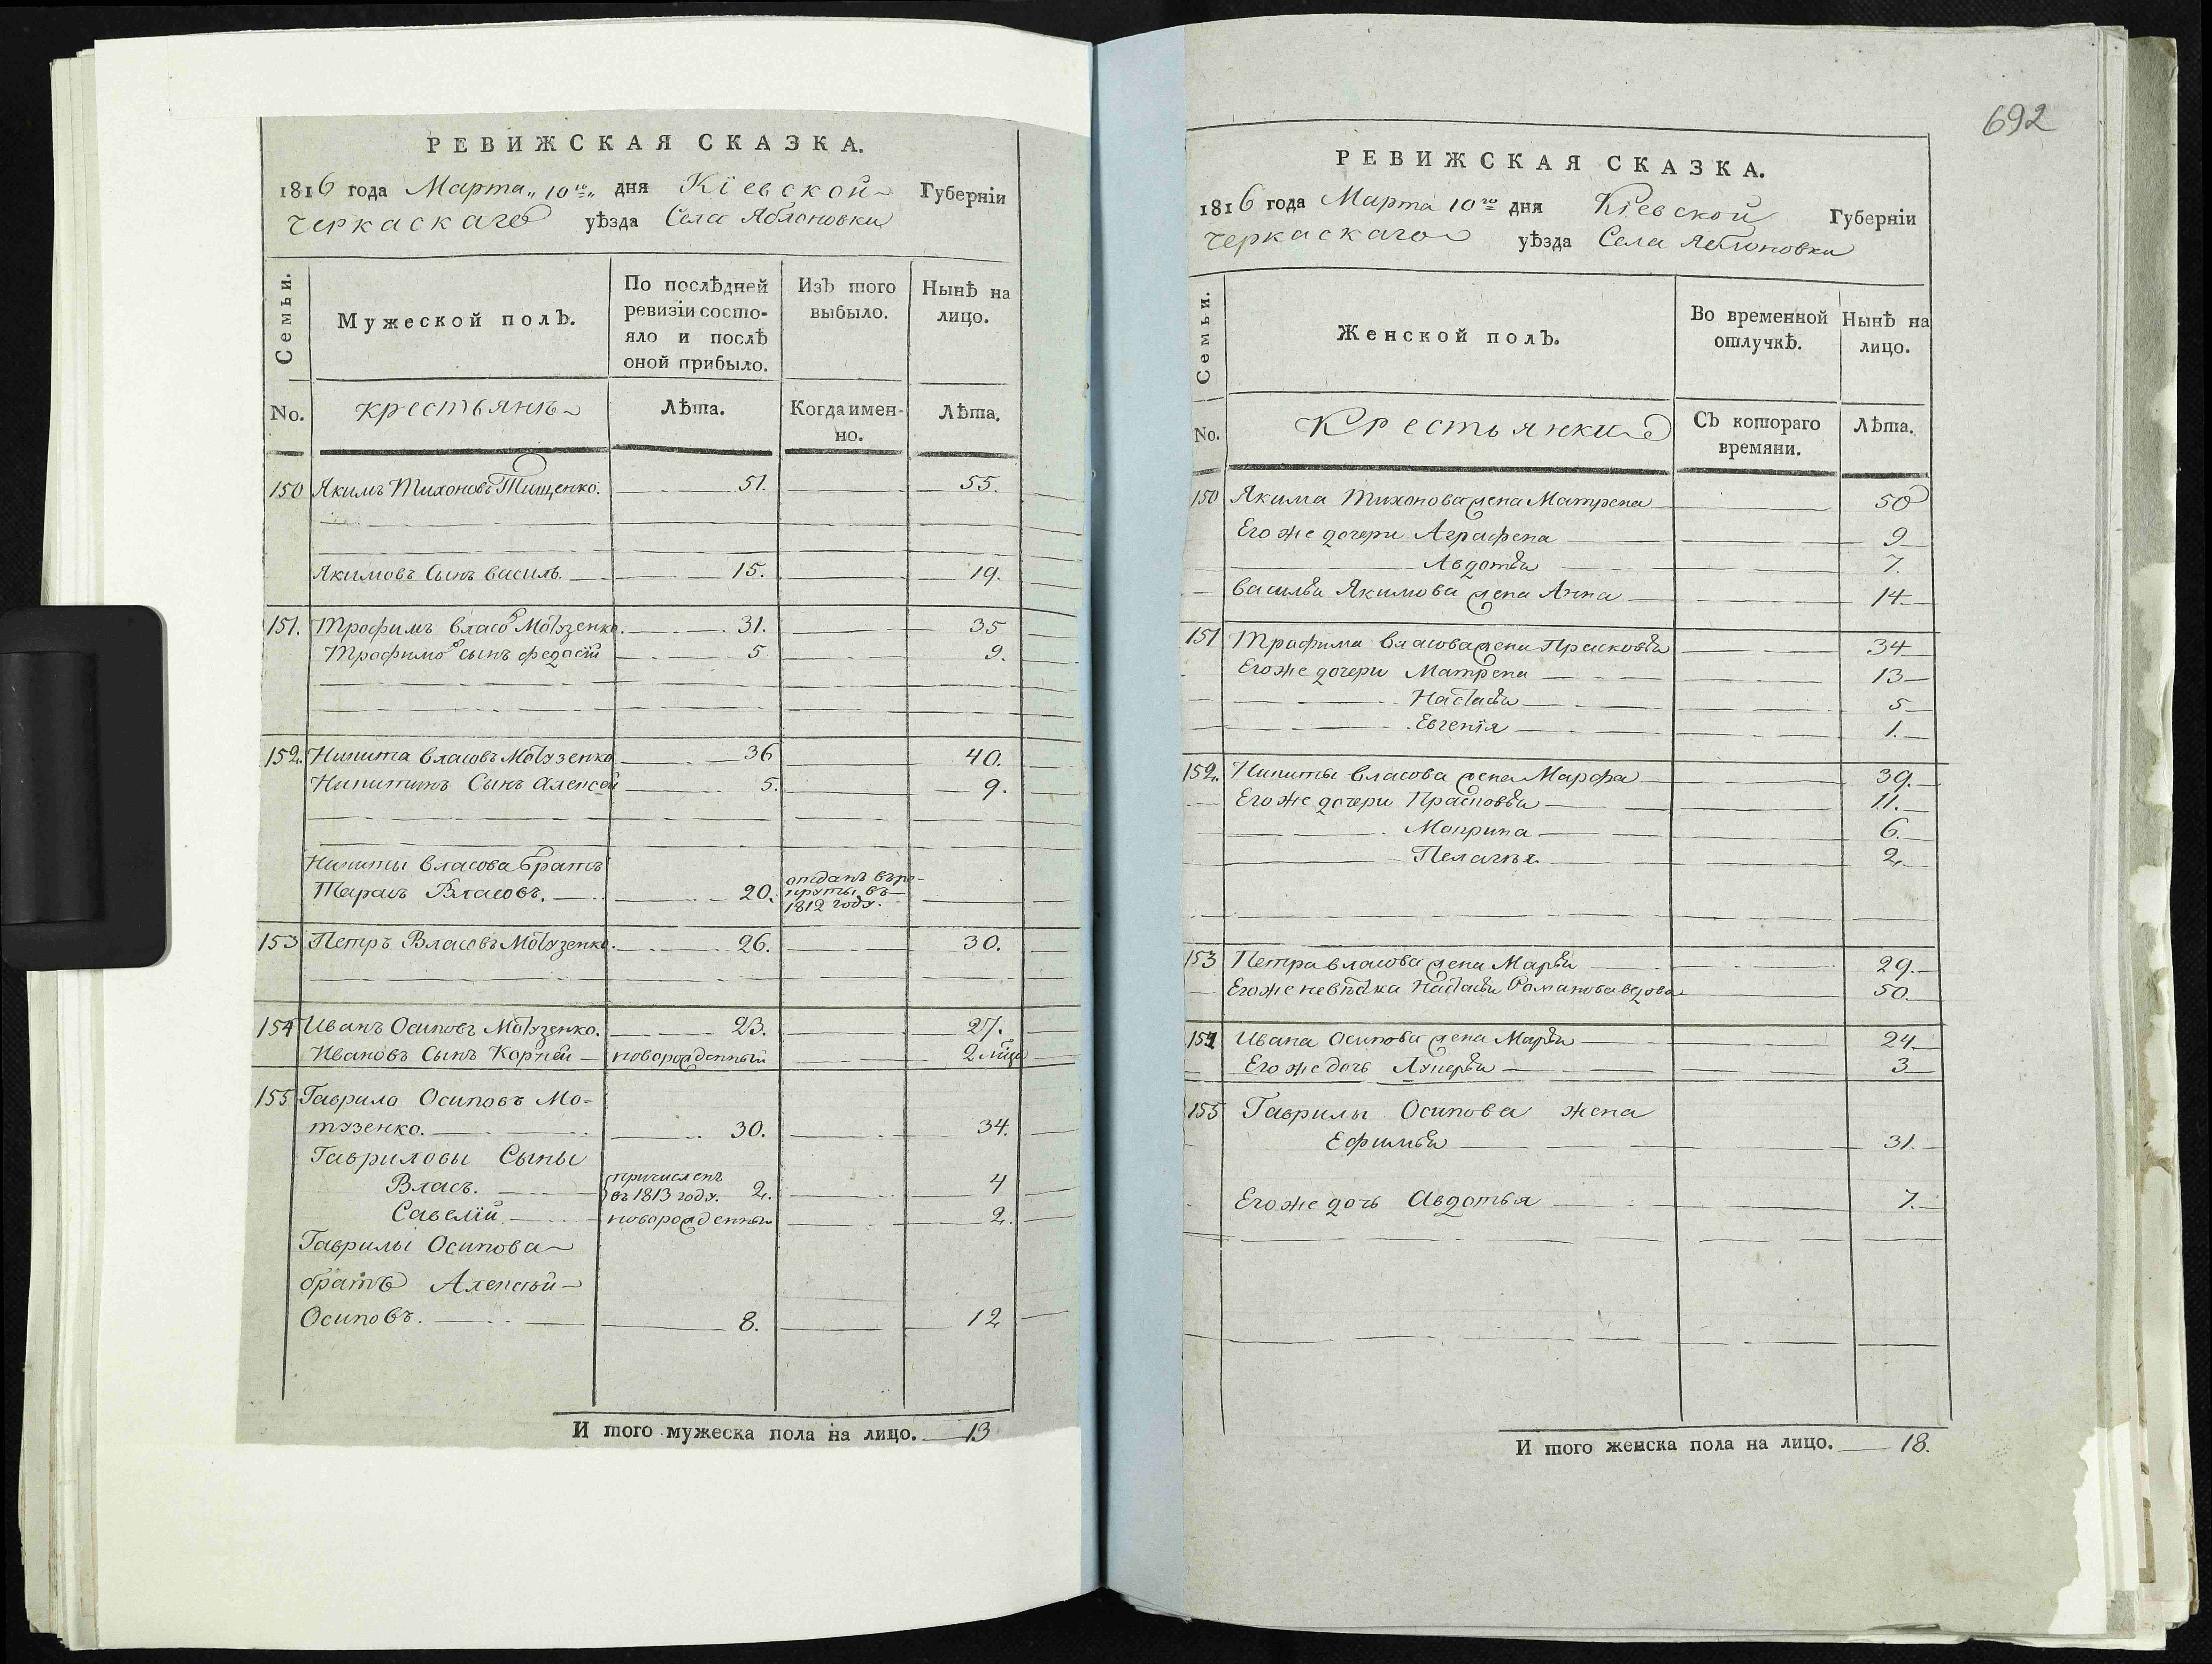 РЕВИЖСКАЯ СКАЗКА.
1816 года Марта „10го„ дня Кіевской Губерніи
Черкаскаго уѣзда Села Яблоновки
Семьи.
Мужеской полъ.
По послѣдней
ревизіи состо-
яло и послѣ
оной прибыло.
Изъ того
выбыло.
Нынѣ на
лицо.
No. крестьянъ Лѣта. Когда имен-
но. Лѣта.
150 Якимъ Тихоновъ Тищенко. 51. 55.
Якимовъ Сынъ Василь. 15. 19.
151. Трофимъ Власовъ Мотузенко. 31. 35
Трофимовъ сынъ Федосій 5 9.
152. Никита Власовъ Мотузенко 36 40.
Никитинъ Сынъ Алексей 5. 9.
Никиты Власова братъ
Тарасъ Власовъ. 20. отданъ въ ре-
круты въ
1812 году.
153 Петръ Власовъ Мотузенко. 26. 30.
154 Иванъ Осиповъ Мотузенко. 23. 27.
Ивановъ Сынъ Корней новорожденный 2 мца
155 Гаврило Осиповъ Мо=
тузенко. 30. 34.
Гавриловы Сыны
Власъ. причисленъ
въ 1813 году. 2. 4
Савелій новорожденны 2.
Гаврилы Осипова
братъ Алексѣй
Осиповъ. 8. 12
И того мужеска пола на лицо. 13
692
РЕВИЖСКАЯ СКАЗКА.
1816 года Марта 10го дня Кіевской Губерніи
Черкаскаго уѣзда Села Яблоновки
Семьи.
Женской полъ.
Во временной
отлучкѣ.
Нынѣ на
лицо.
No. Крестьянки Съ котораго
времяни. Лѣта.
150 Якима Тихонова жена Матрена 50
Его же дочери Аграфена 9
Авдотья 7.
Василья Якимова жена Анна 14
151 Трофима Власова жена Прасковья 34
Его же дочери Матрена 13
Настасья 5
Евгенія 1.
152. Никиты Власова жена Марфа 39.
Его же дочери Прасковья 11.
Мокрина 6.
Пелагья 2
153 Петра Власова жена Марья 29.
Его же невѣстка Настасья Романова вдова 50.
154 Ивана Осипова жена Марья 24
Его же дочь Лукерья 3
155 Гаврилы Осипова жена
Ефимья 31.
Его же дочь Авдотья 7.
И того женска пола на лицо. 18.